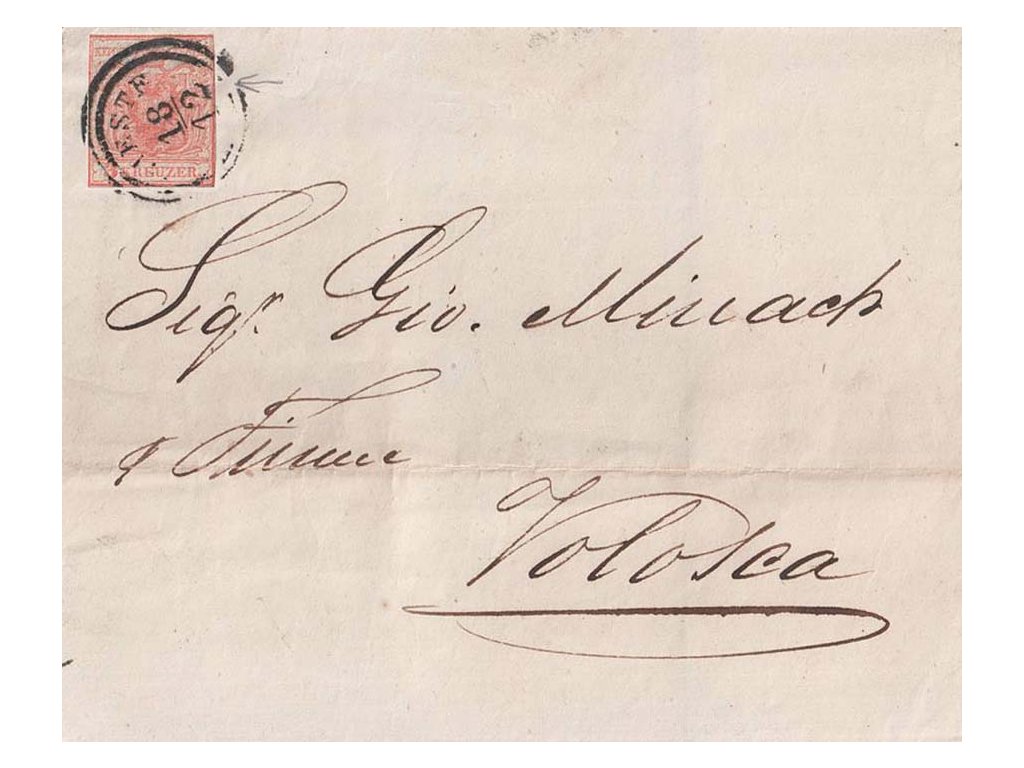 IESTE
18
12
KREUZER
Sigr. Gio. Minach
p Fiume
Volosca